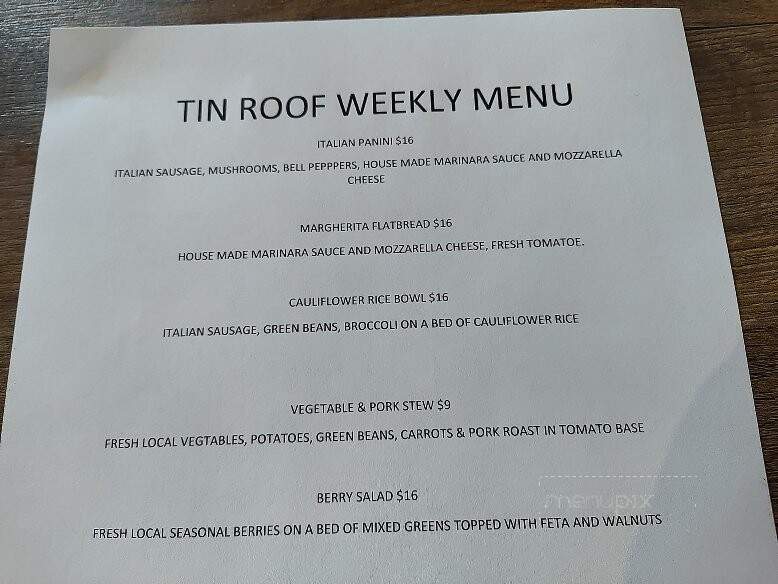 TIN ROOF WEEKLY MENU
ITALIAN PANINI $16
ITALIAN SAUSAGE, MUSHROOMS, BELL PEPPPERS, HOUSE MADE MARINARA SAUCE AND MOZZARELLA
CHEESE
MARGHERITA FLATBREAD $16
HOUSE MADE MARINARA SAUCE AND MOZZARELLA CHEESE, FRESH TOMATOE.
CAULIFLOWER RICE BOWL $16
ITALIAN SAUSAGE, GREEN BEANS, BROCCOLI ON A BED OF CAULIFLOWER RICE
VEGETABLE & PORK STEW $9
FRESH LOCAL VEGTABLES, POTATOES, GREEN BEANS, CARROTS & PORK ROAST IN TOMATO BASE
BERRY SALAD $16
menupix
FRESH LOCAL SEASONAL BERRIES ON A BED OF MIXED GREENS TOPPED WITH FETA AND WALNUTS